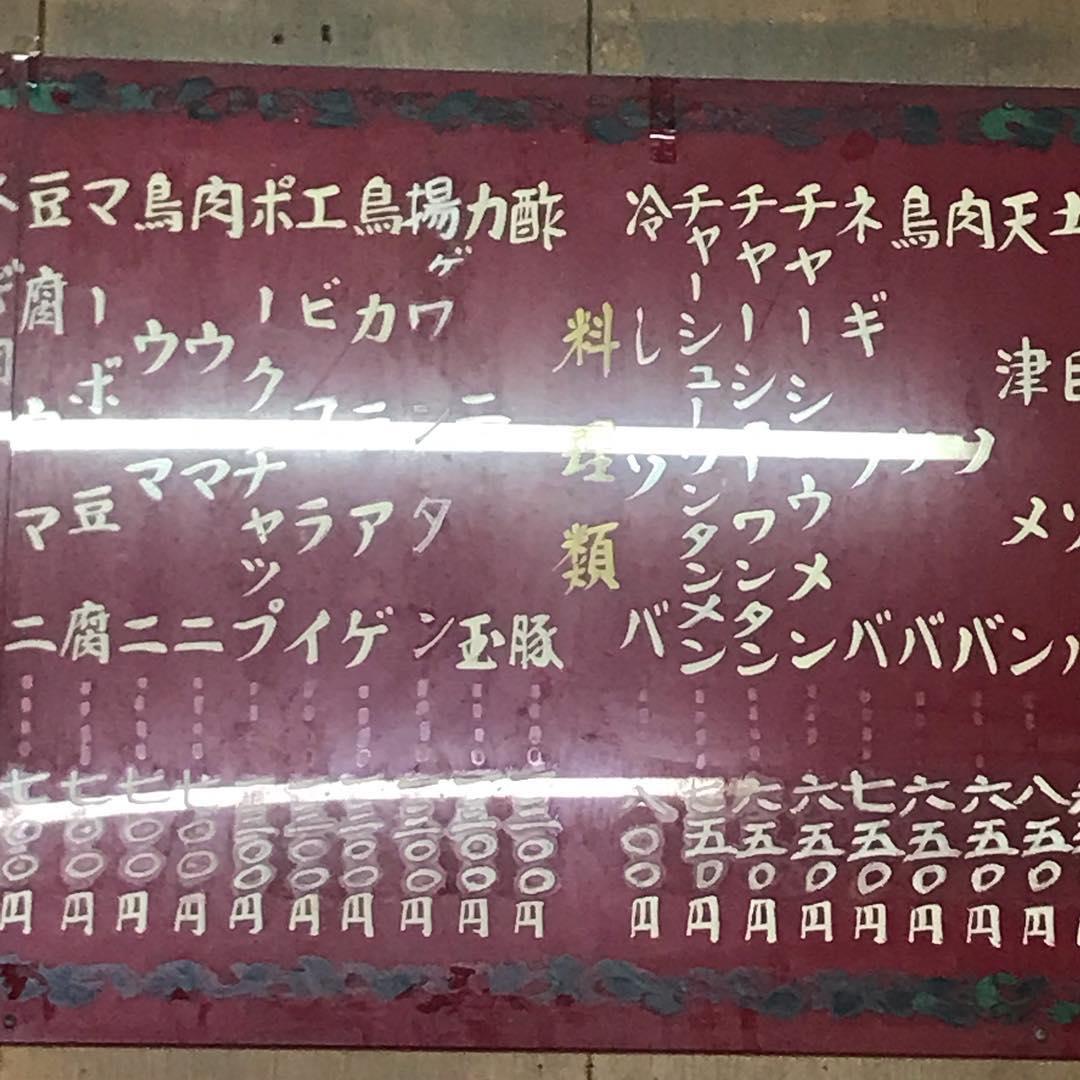 天津メン 八五〇円
肉ソバ 六五〇円
鳥ソバ 六五〇円
ネギソバ 七五〇円
チャーシウメン 六五〇円
チャーシーワンタン 六五〇円
チャーシューワンタンメン 七五〇円
冷しソバ 八〇〇円
料理類
酢豚 〇〇円
カニ玉 〇〇円
揚ゲワンタン 〇〇円
鳥カラアゲ 〇〇円
エビフライ 〇〇円
ポークチャップ 〇〇円
肉ウマニ 七〇〇円
鳥ウマニ 七〇〇円
マーボ豆腐 七〇〇円
豆腐ウマニ 七〇〇円